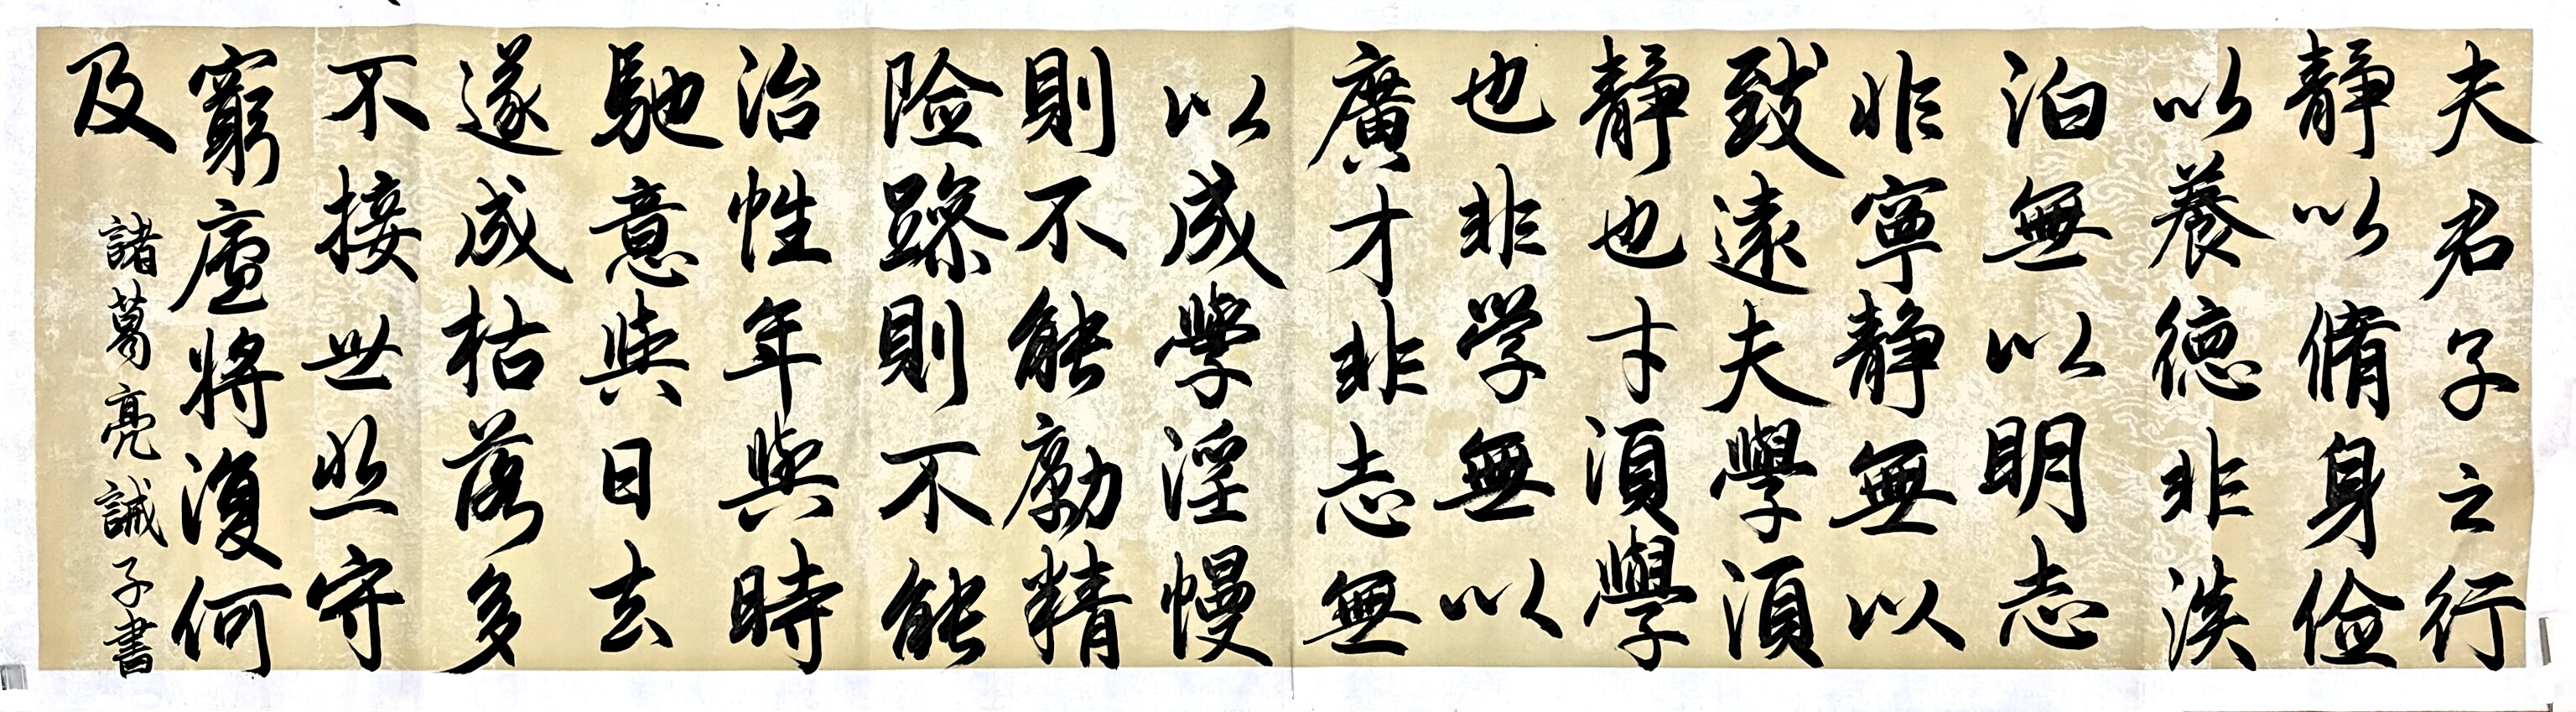 夫君子之行
静以脩身儉
以養德非淡
泊無以明志
非寧静無以
致遠夫學須
静也才須學
也非学無以
廣才非志無
以成學淫慢
則不能勵精
险躁則不能
治性年與時
馳意與日去
遂成枯落多
不接世悲守
窮廬將復何
及
諸葛亮誡子書